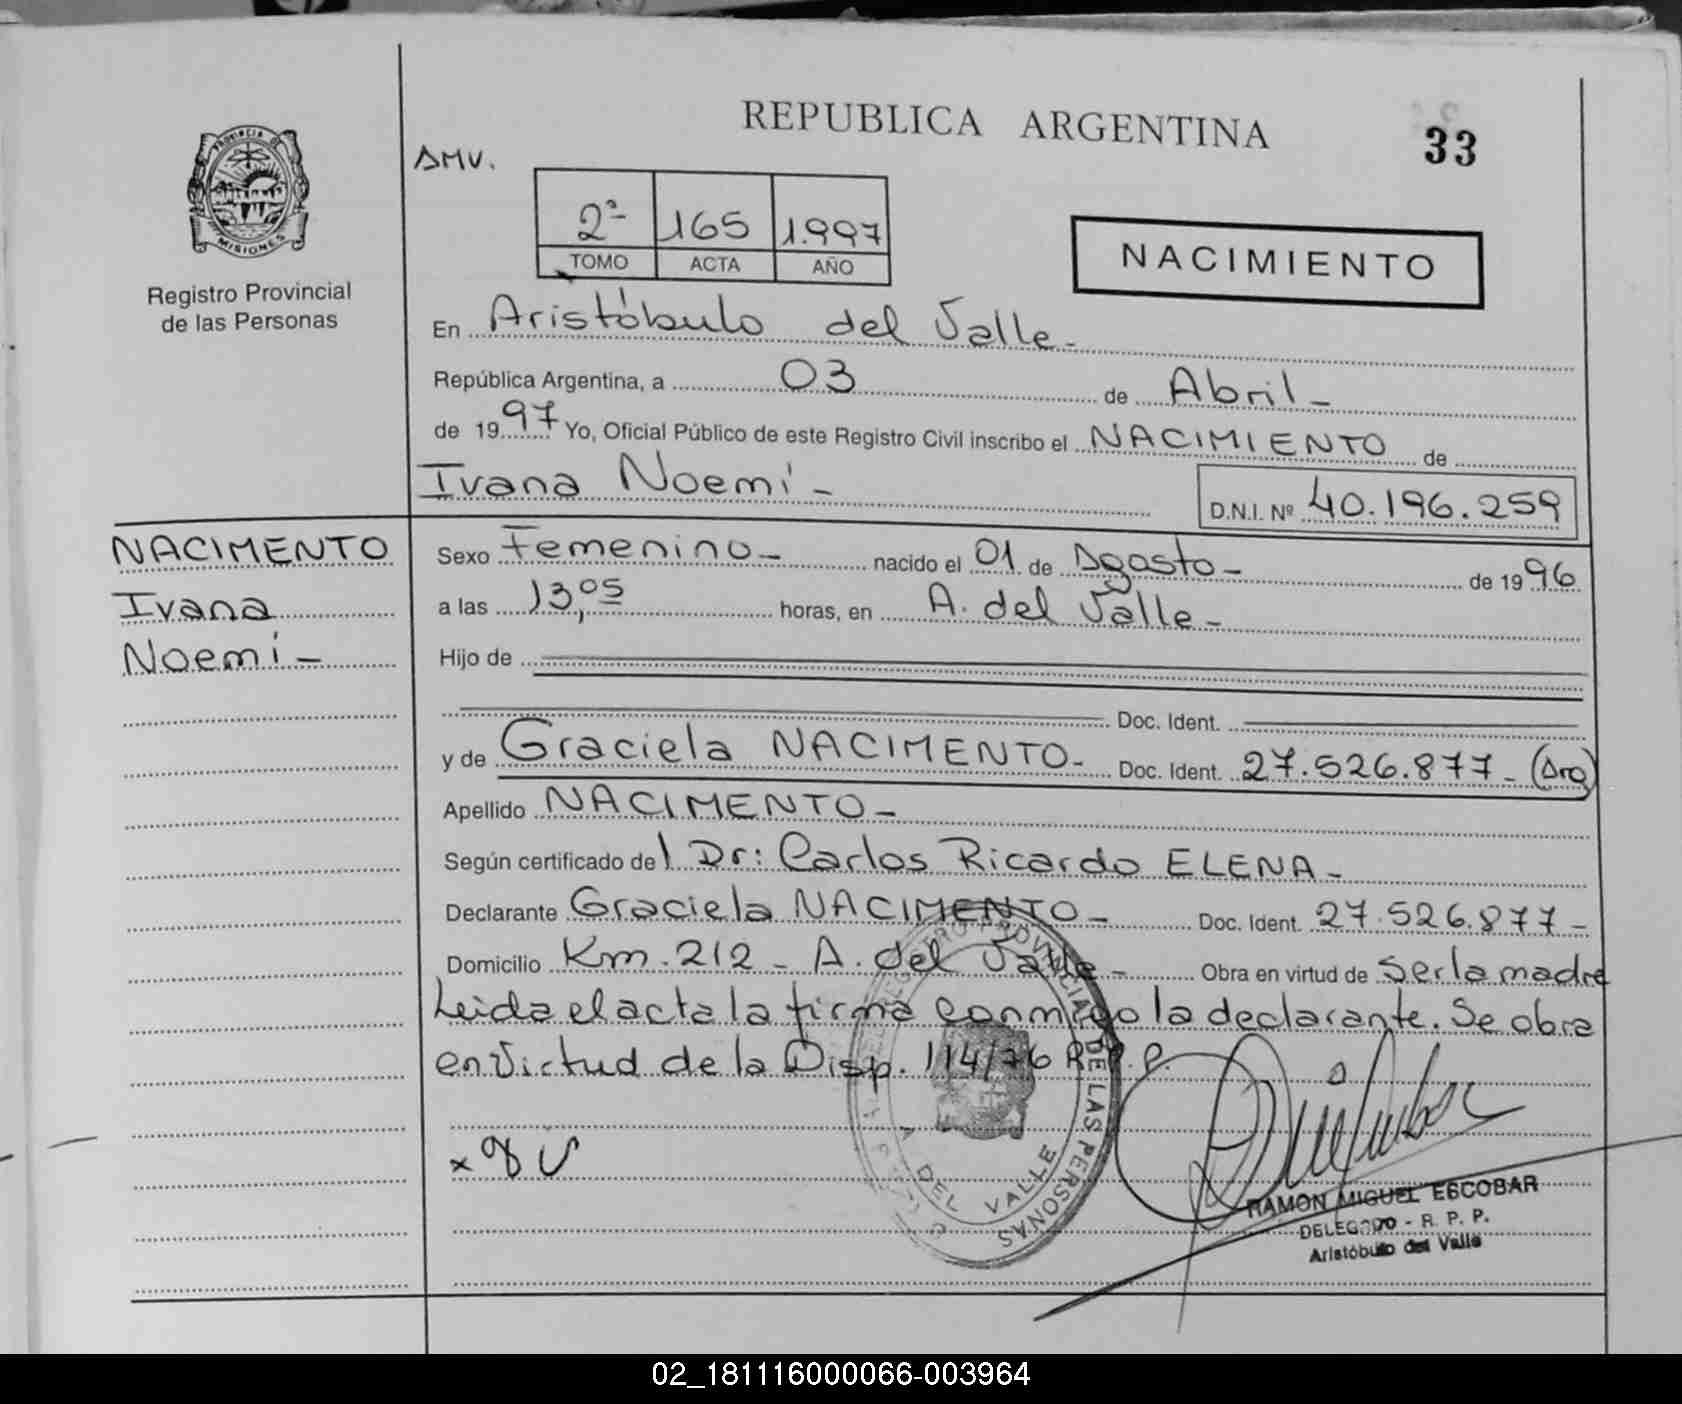 REPUBLICA ARGENTINA
33
AMV.
PROVINCIA DE
MISIONES
Registro Provincial
de las Personas
2ª 165 1.997
TOMO ACTA AÑO
NACIMIENTO
En Aristóbulo del Valle-
República Argentina, a 03 de Abril-
de 1997 Yo, Oficial Público de este Registro Civil inscribo el NACIMIENTO de
Ivana Noemí-
D.N.I. Nº 40.196.259
NACIMENTO
Ivana
Noemí-
Sexo Femenino- nacido el 01 de Agosto- de 1996
a las 13,05 horas, en A. del Valle-
Hijo de
Doc. Ident.
y de Graciela NACIMENTO- Doc. Ident. 27.526.877- (Arg)
Apellido NACIMENTO-
Según certificado del Dr: Carlos Ricardo ELENA-
Declarante Graciela NACIMENTO- Doc. Ident. 27.526.877-
Domicilio Km. 212 - A. del Valle- Obra en virtud de Ser la madre
Leida el acta la firma conmigo la declarante. Se obra
en Virtud de la Disp. 114/76 R.P.P.
REGISTRO PROVINCIAL DE LAS PERSONAS
A. DEL VALLE
RAMON MIGUEL ESCOBAR
DELEGADO - R. P. P.
Aristóbulo del Valle
02_181116000066-003964